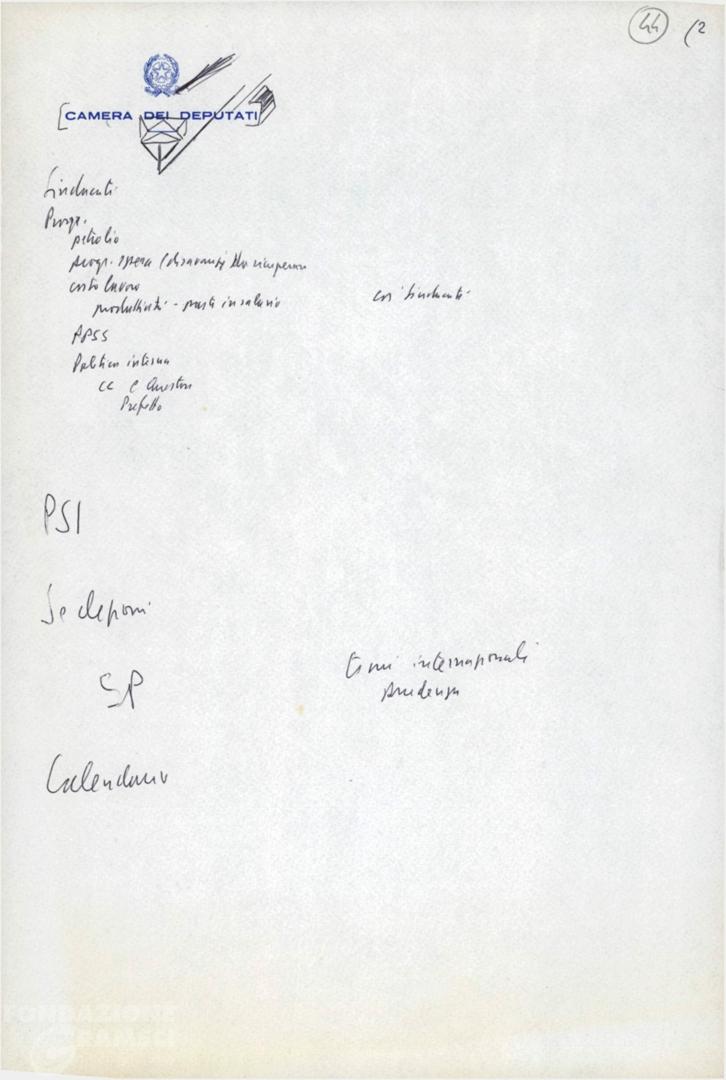 44 (2
CAMERA DEI DEPUTATI
Sindacati
Progr.
petrolio
progr. spesa (disavanzi) da recuperare
costo lavoro
produttività - parti in salario
con sindacati
PPSS
Politica interna
CC e Questori
Prefetto
PSI
Se elezioni
temi internazionali
SP
prudenza
Calendario
FONDAZIONE
CRAXI